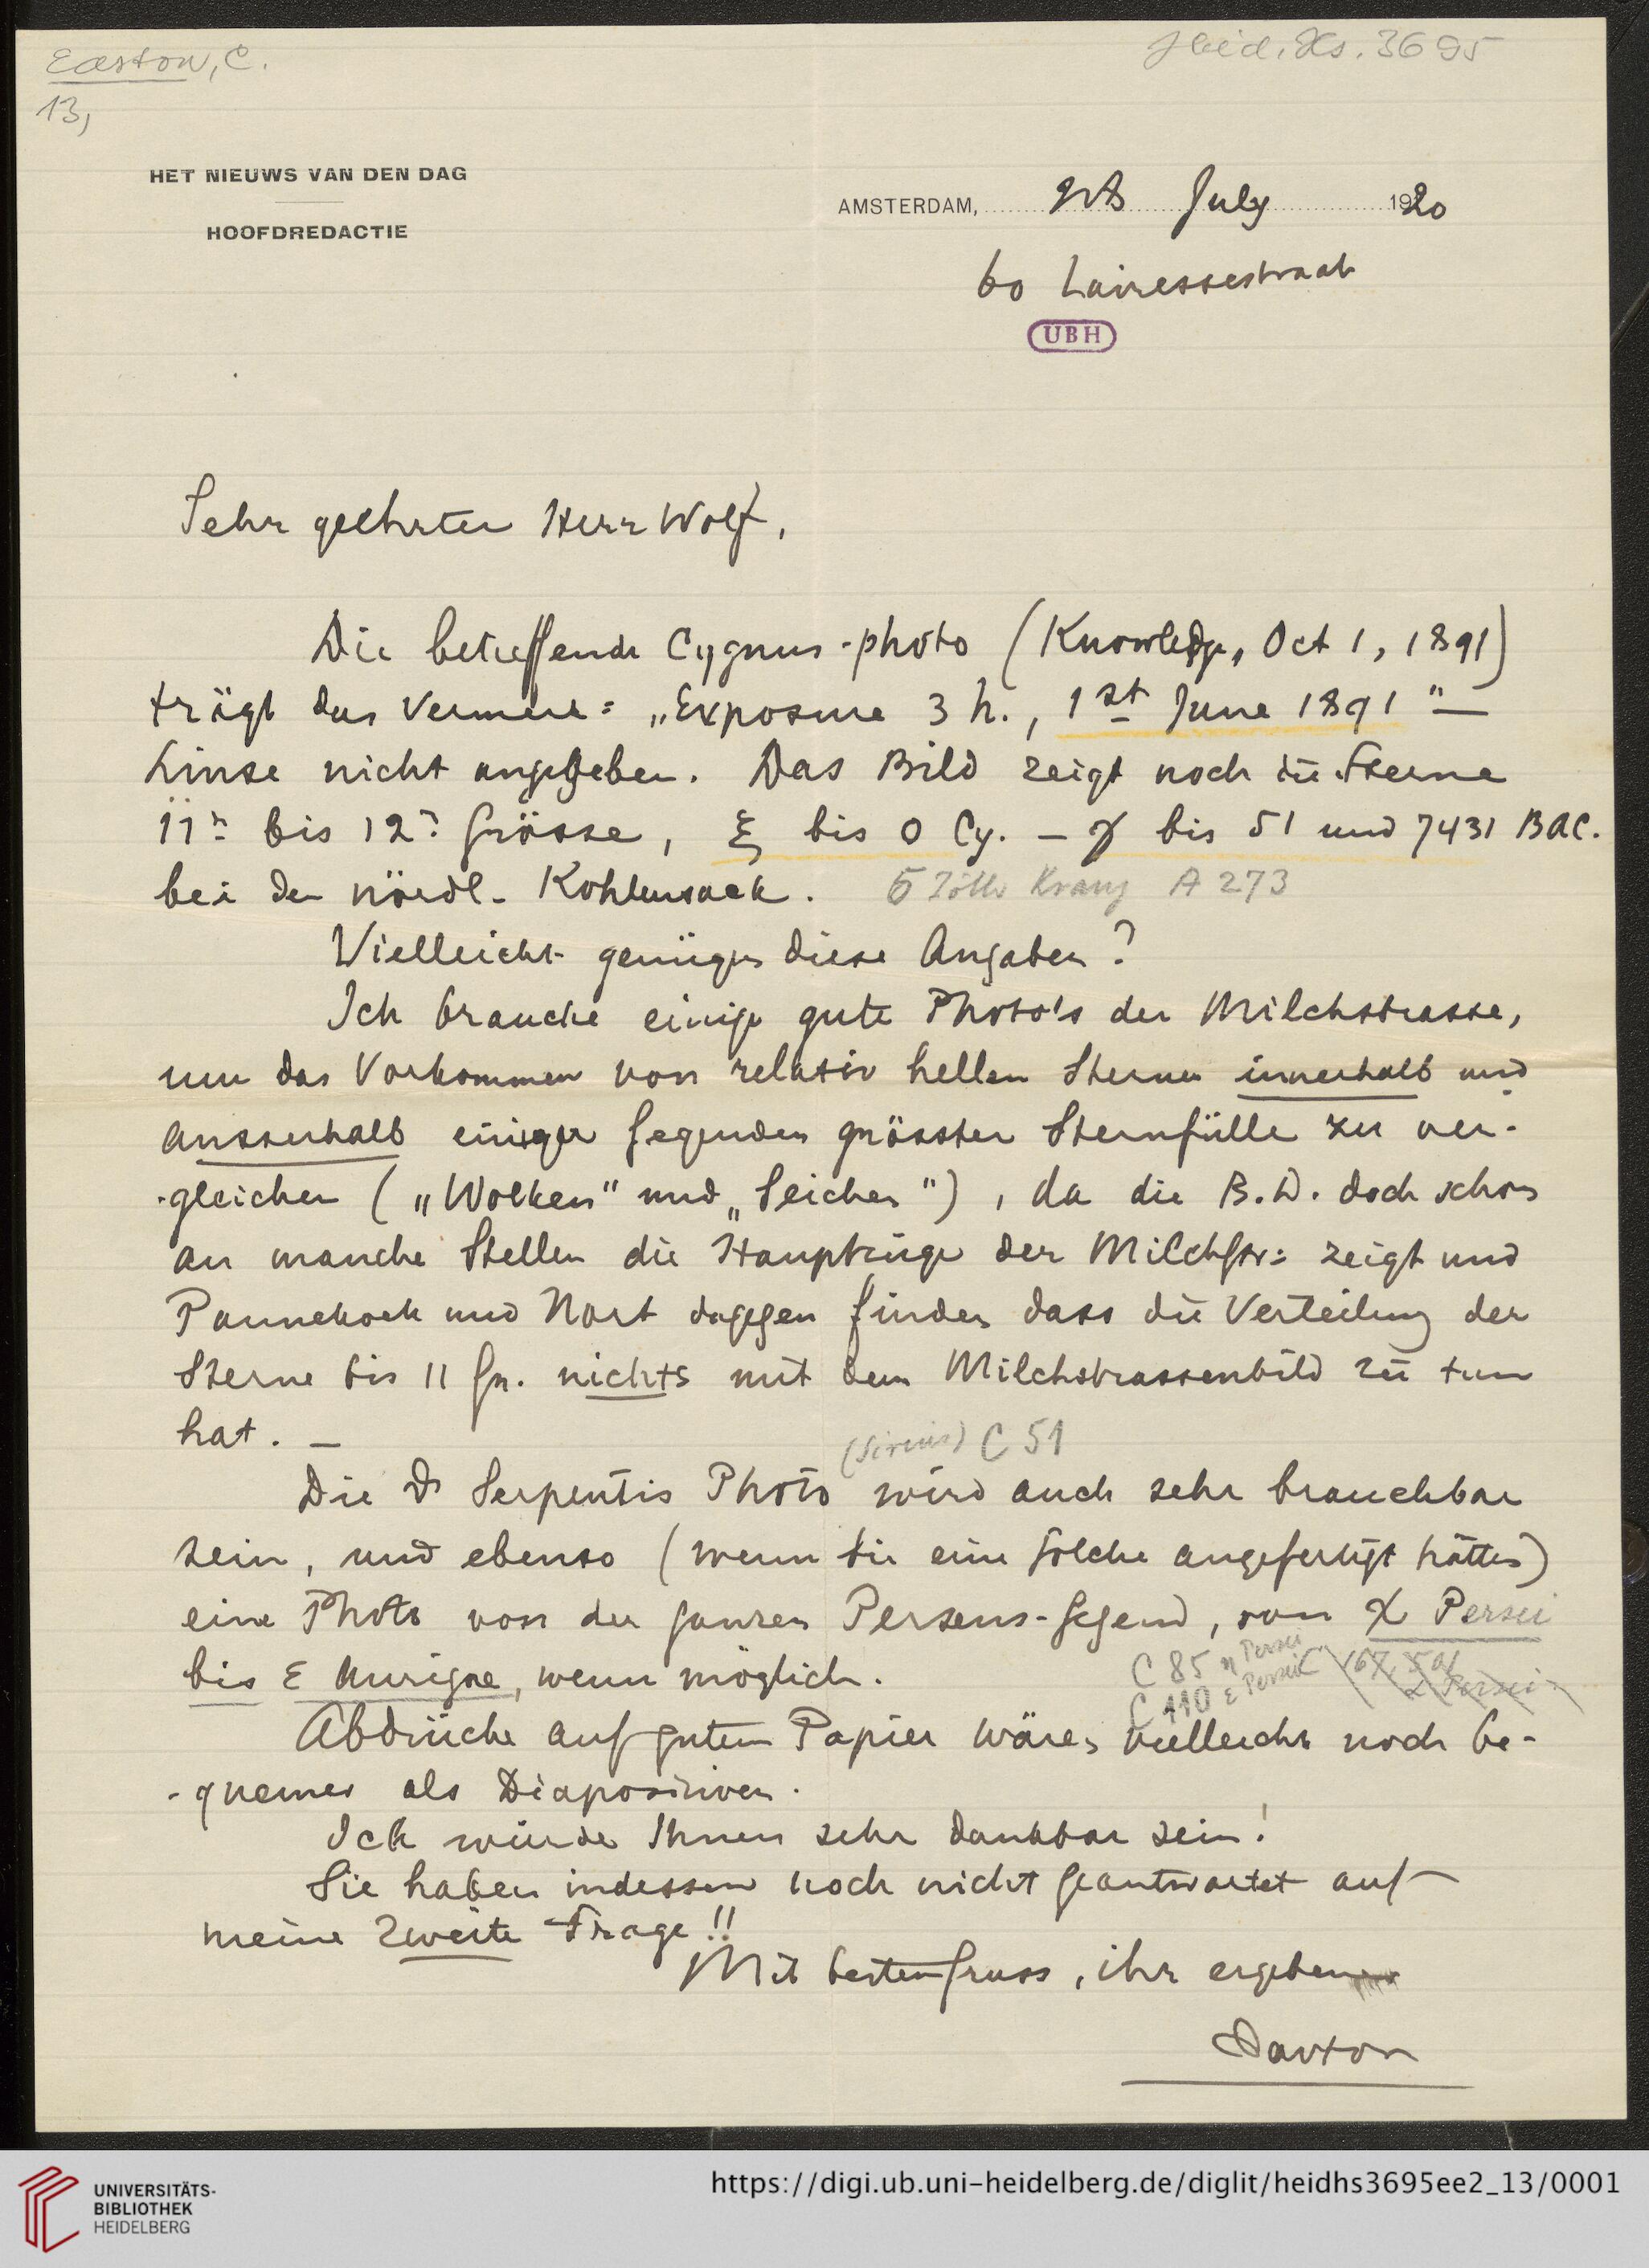 Easton, C.
Heid. Hs. 3695
13,
HET NIEUWS VAN DEN DAG
HOOFDREDACTIE
AMSTERDAM, July 1920
60 Lairessestraat
UBH
Sehr geehrter Herr Wolf,
Die betreffende Cygnus-photo (Knowledge, Oct 1, 1891)
trägt das Vermerk: „Exposure 3 h., 1st June 1891" —
Linse nicht angegeben. Das Bild zeigt noch die Sterne
11r bis 12r Grösse, ξ bis o Cy. – γ bis 51 und 7431 BAC.
bei dem nördl. Kohlensack. 6 Zöller Kranz A 273
Vielleicht genügen diese Angaben?
Ich brauche einige gute Photo's der Milchstrasse,
um das Vorkommen von relativ hellen Sternen innerhalb und
ausserhalb einiger Gegenden grösster Sternfülle zu ver-
-gleichen („Wolken" und „Teichen"), da die B.D. doch schon
an manche Stellen die Hauptzüge der Milchstr: zeigt und
Pannekoek und Nort dagegen finden dass die Verteilung der
Sterne bis 11 Gr. nichts mit dem Milchstrassenbild zu tun
hat. —
(Sirius) C 51
Die Serpentis Photo wird auch sehr brauchbar
sein, und ebenso (wenn Sie eine solche angefertigt hätten)
eine Photo von der ganzen Perseus-Gegend, von χ Persei
bis ε Aurigae, wenn möglich.
C 85 η Persei
C 110 ε Persei
Abdrücke auf gutem Papier wären vielleicht noch be-
-quemer als Diapositiven.
Ich würde Ihnen sehr dankbar sein!
Sie haben indessen noch nicht geantwortet auf
meine zweite Frage!!
Mit besten Gruss, ihr ergebener
Easton
UNIVERSITÄTS-
BIBLIOTHEK
HEIDELBERG
https://digi.ub.uni-heidelberg.de/diglit/heidhs3695ee2_13/0001